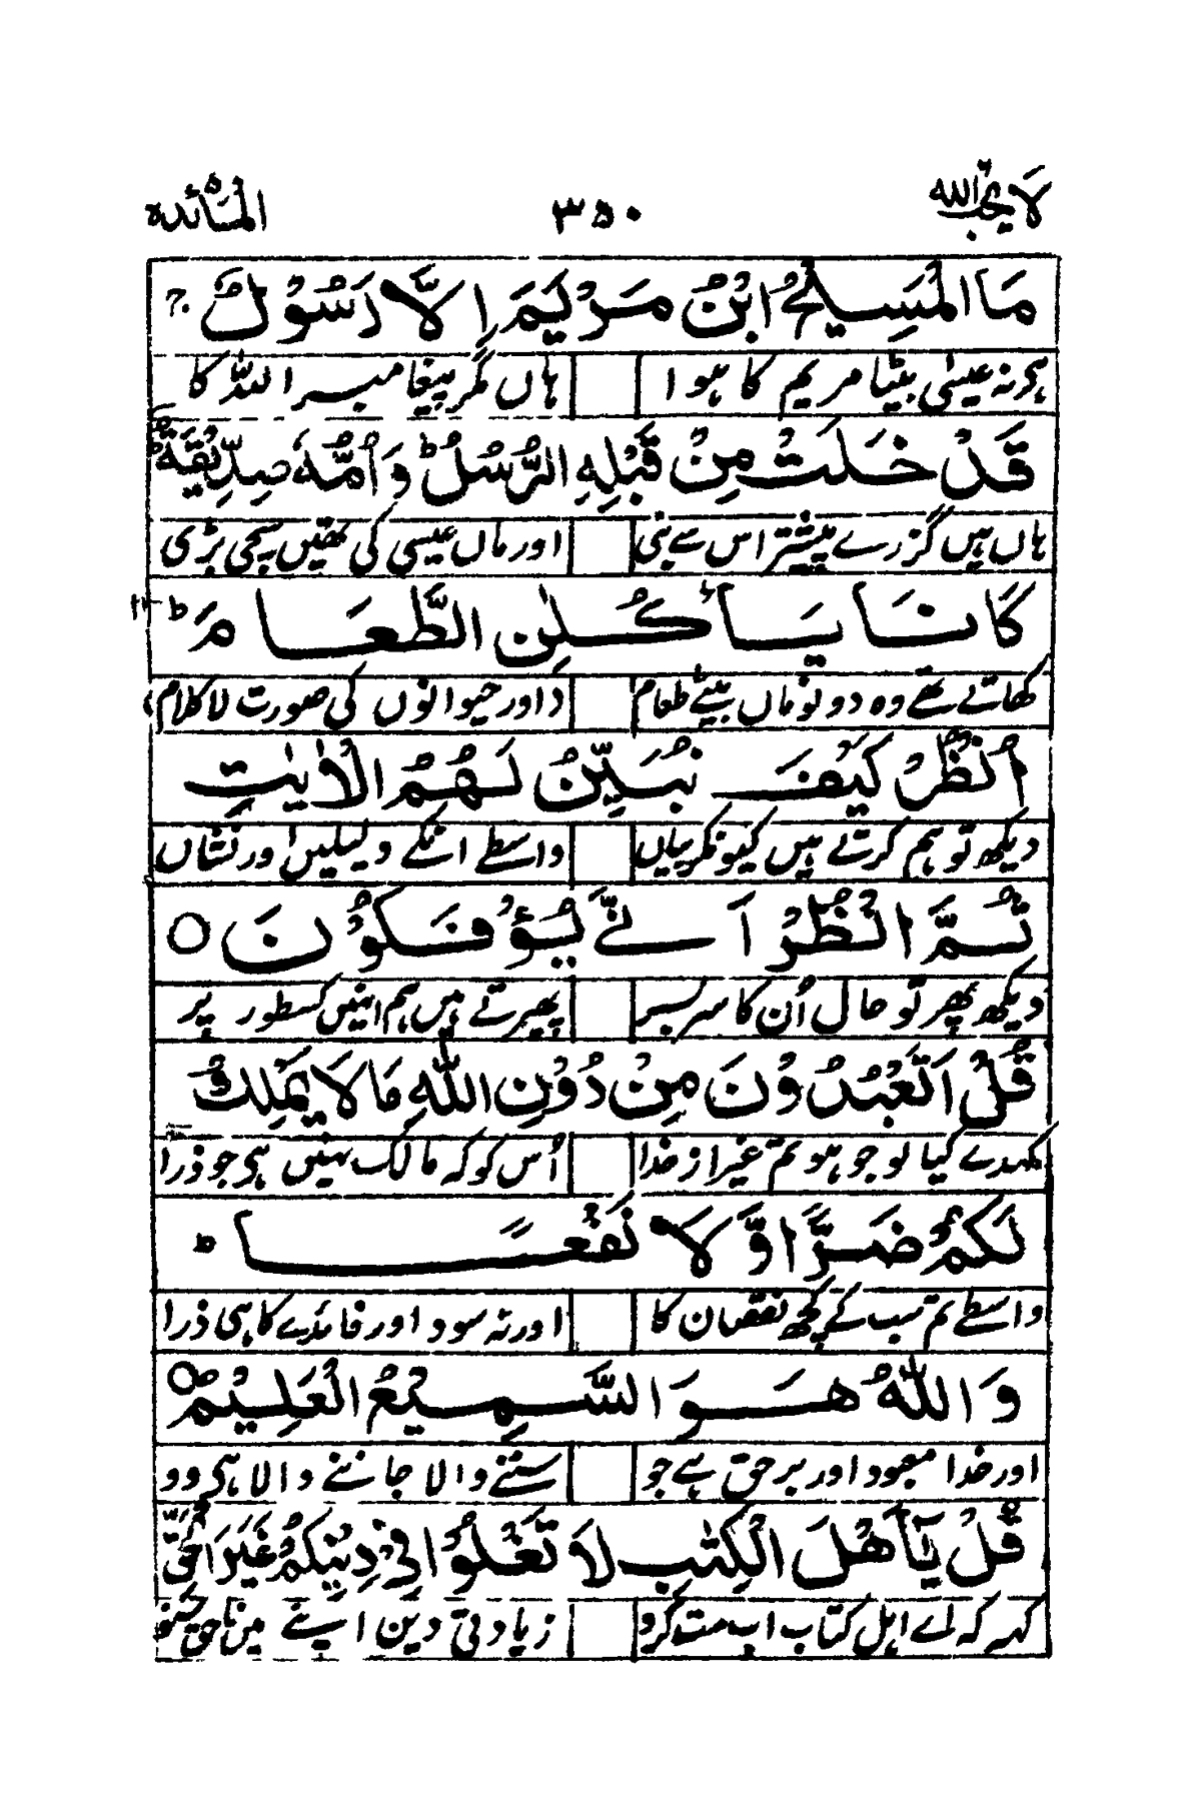 لا یحب الله ۳۵۰ المآئدہ
مَا الْمَسِیْحُ ابْنُ مَرْیَمَ اِلَّا رَسُوْلٌ ج
ہی نہ عیسیٰ بیٹا مریم کا ہوا ہاں مگر پیغامبر اللہ کا
قَدْ خَلَتْ مِنْ قَبْلِهِ الرُّسُلُ ط وَاُمُّهٗ صِدِّیْقَةٌ ط
ہاں ہیں گزرے پیشتر اس سے نبی اور ماں عیسی کی تھیں سچی بڑی
كَانَا یَاْكُلٰنِ الطَّعَامَ ط
کھاتے تھے وہ دونو ماں بیٹے طعام اور حیوانوں کی صورت لا کلام
اُنْظُرْ كَیْفَ نُبَیِّنُ لَهُمُ الْاٰیٰتِ
دیکھ تو ہم کرتے ہیں کیونکر بیاں واسطے انکے دلیلیں اور نشاں
ثُمَّ انْظُرْ اَنّٰی یُؤْفَكُوْنَ ○
دیکھ پھر تو حال اُن کا سر بسر پھیرتے ہیں ہم انہیں کسطور پر
قُلْ اَتَعْبُدُوْنَ مِنْ دُوْنِ اللّٰهِ مَا لَا یَمْلِكُ
کہدے کیا لو جو ہو تم غیر از خدا اُس کو کہ مالک نہیں ہی جو ذرا
لَكُمْ ضَرًّا وَّلَا نَفْعًا ط
واسطے تم سب کے کچھ نقصان کا اور نہ سود اور فائدے کا ہی ذرا
وَاللّٰهُ هُوَ السَّمِیْعُ الْعَلِیْمُ ○
اور خدا معبود اور برحق ہے جو سننے والا جاننے والا ہی وو
قُلْ یٰۤاَهْلَ الْكِتٰبِ لَا تَغْلُوْا فِیْ دِیْنِكُمْ غَیْرَ الْحَقِّ
کہہ کہ اے اہل کتاب اب مت کرو زیادتی دین اپنے میں ناحق